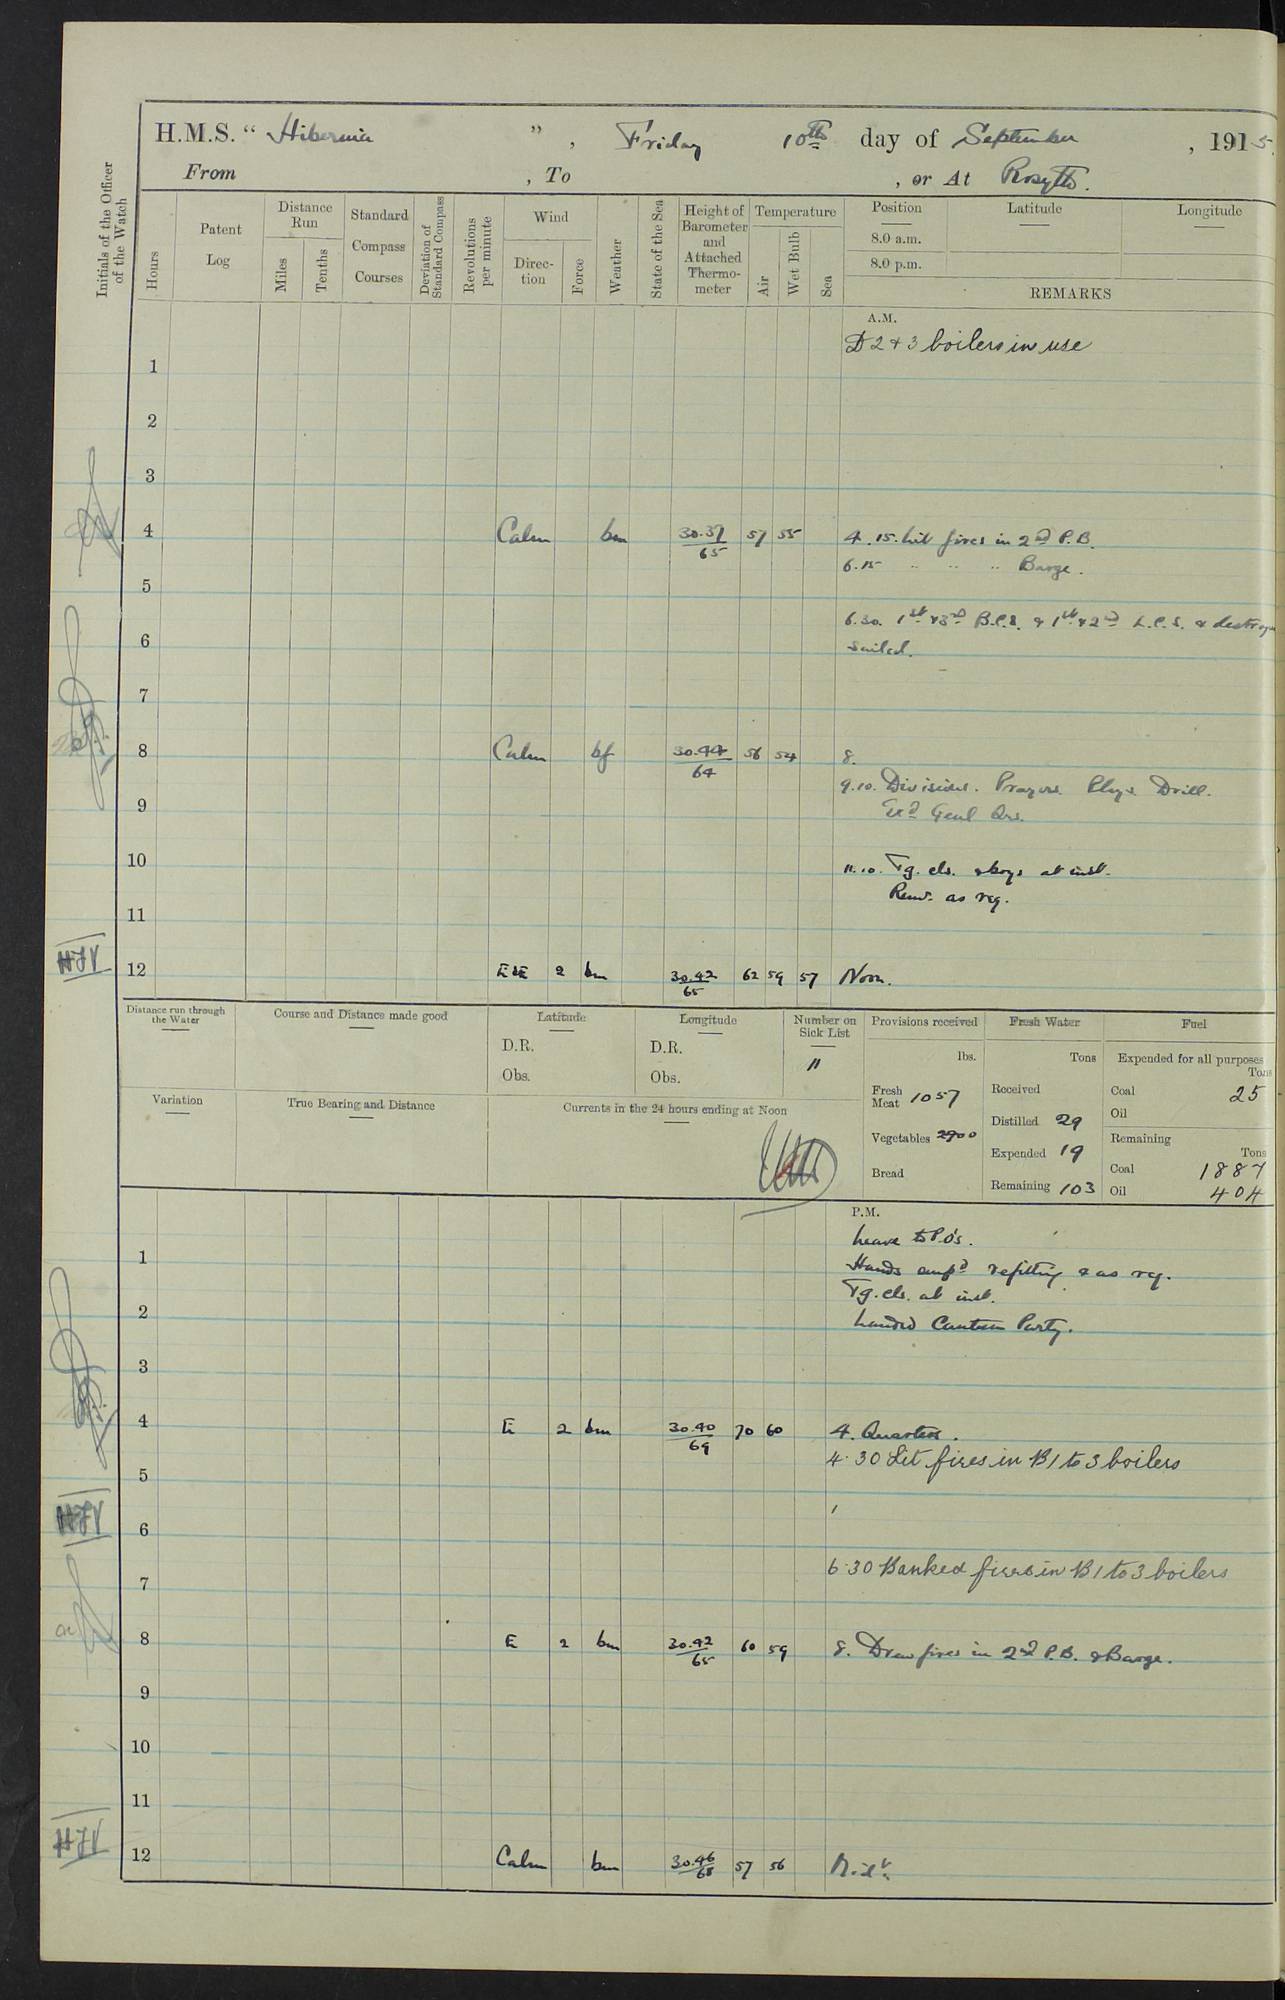 H.M.S. "Hibernia", Friday 10th day of September, 1915.
From , To , or At Rosyth.
Initials of the Officer of the Watch
Hours
Patent Log
Distance Run
Miles
Tenths
Standard Compass Courses
Deviation of Standard Compass
Revolutions per minute
Wind
Direction
Force
Weather
State of the Sea
Height of Barometer and Attached Thermometer
Temperature
Air
Wet Bulb
Sea
Position
Latitude
Longitude
8.0 a.m.
8.0 p.m.
REMARKS
A.M.
D 2 & 3 boilers in use
1
2
3
4 Calm bm 30.37/65 57 55 4.15. Lit fires in 2nd P.B.
6.15 " " " Barge.
5
6.30. 1st & 3rd B.C.S. & 1st & 2nd L.C.S. & destroyers
6
sailed.
7
8 Calm bf 30.44/64 56 54 8.
9.10. Divisions. Prayers. Phys. Drill.
9
Exd Genl Qrs.
10
11.10. Tg. cls. & boys at inst.
Remr. as req.
11
HJV
12 ESE 2 bm 30.42/65 62 59 57 Noon.
Distance run through the Water
Course and Distance made good
Latitude
D.R.
Obs.
Longitude
D.R.
Obs.
Number on Sick List
11
Variation
True Bearing and Distance
Currents in the 24 hours ending at Noon
Provisions received
lbs.
Fresh Meat 1057
Vegetables 2700
Bread
Fresh Water
Tons
Received
Distilled 29
Expended 19
Remaining 103
Fuel
Expended for all purposes
Tons
Coal 25
Oil
Remaining
Tons
Coal 1887
Oil 404
P.M.
Leave to P.O's.
1
Hands empd refitting & as req.
Tg. cls. at inst.
2
Landed Canteen Party.
3
4 E 2 bm 30.40/69 70 60 4. Quarters.
4.30 Lit fires in B1 to 3 boilers
5
HJV
6
6.30 Banked fires in B1 to 3 boilers
7
8 E 2 bm 30.42/65 60 59 8. Drew fires in 2nd P.B. & Barge.
9
10
11
HJV
12 Calm bm 30.46/68 57 56 Midt.